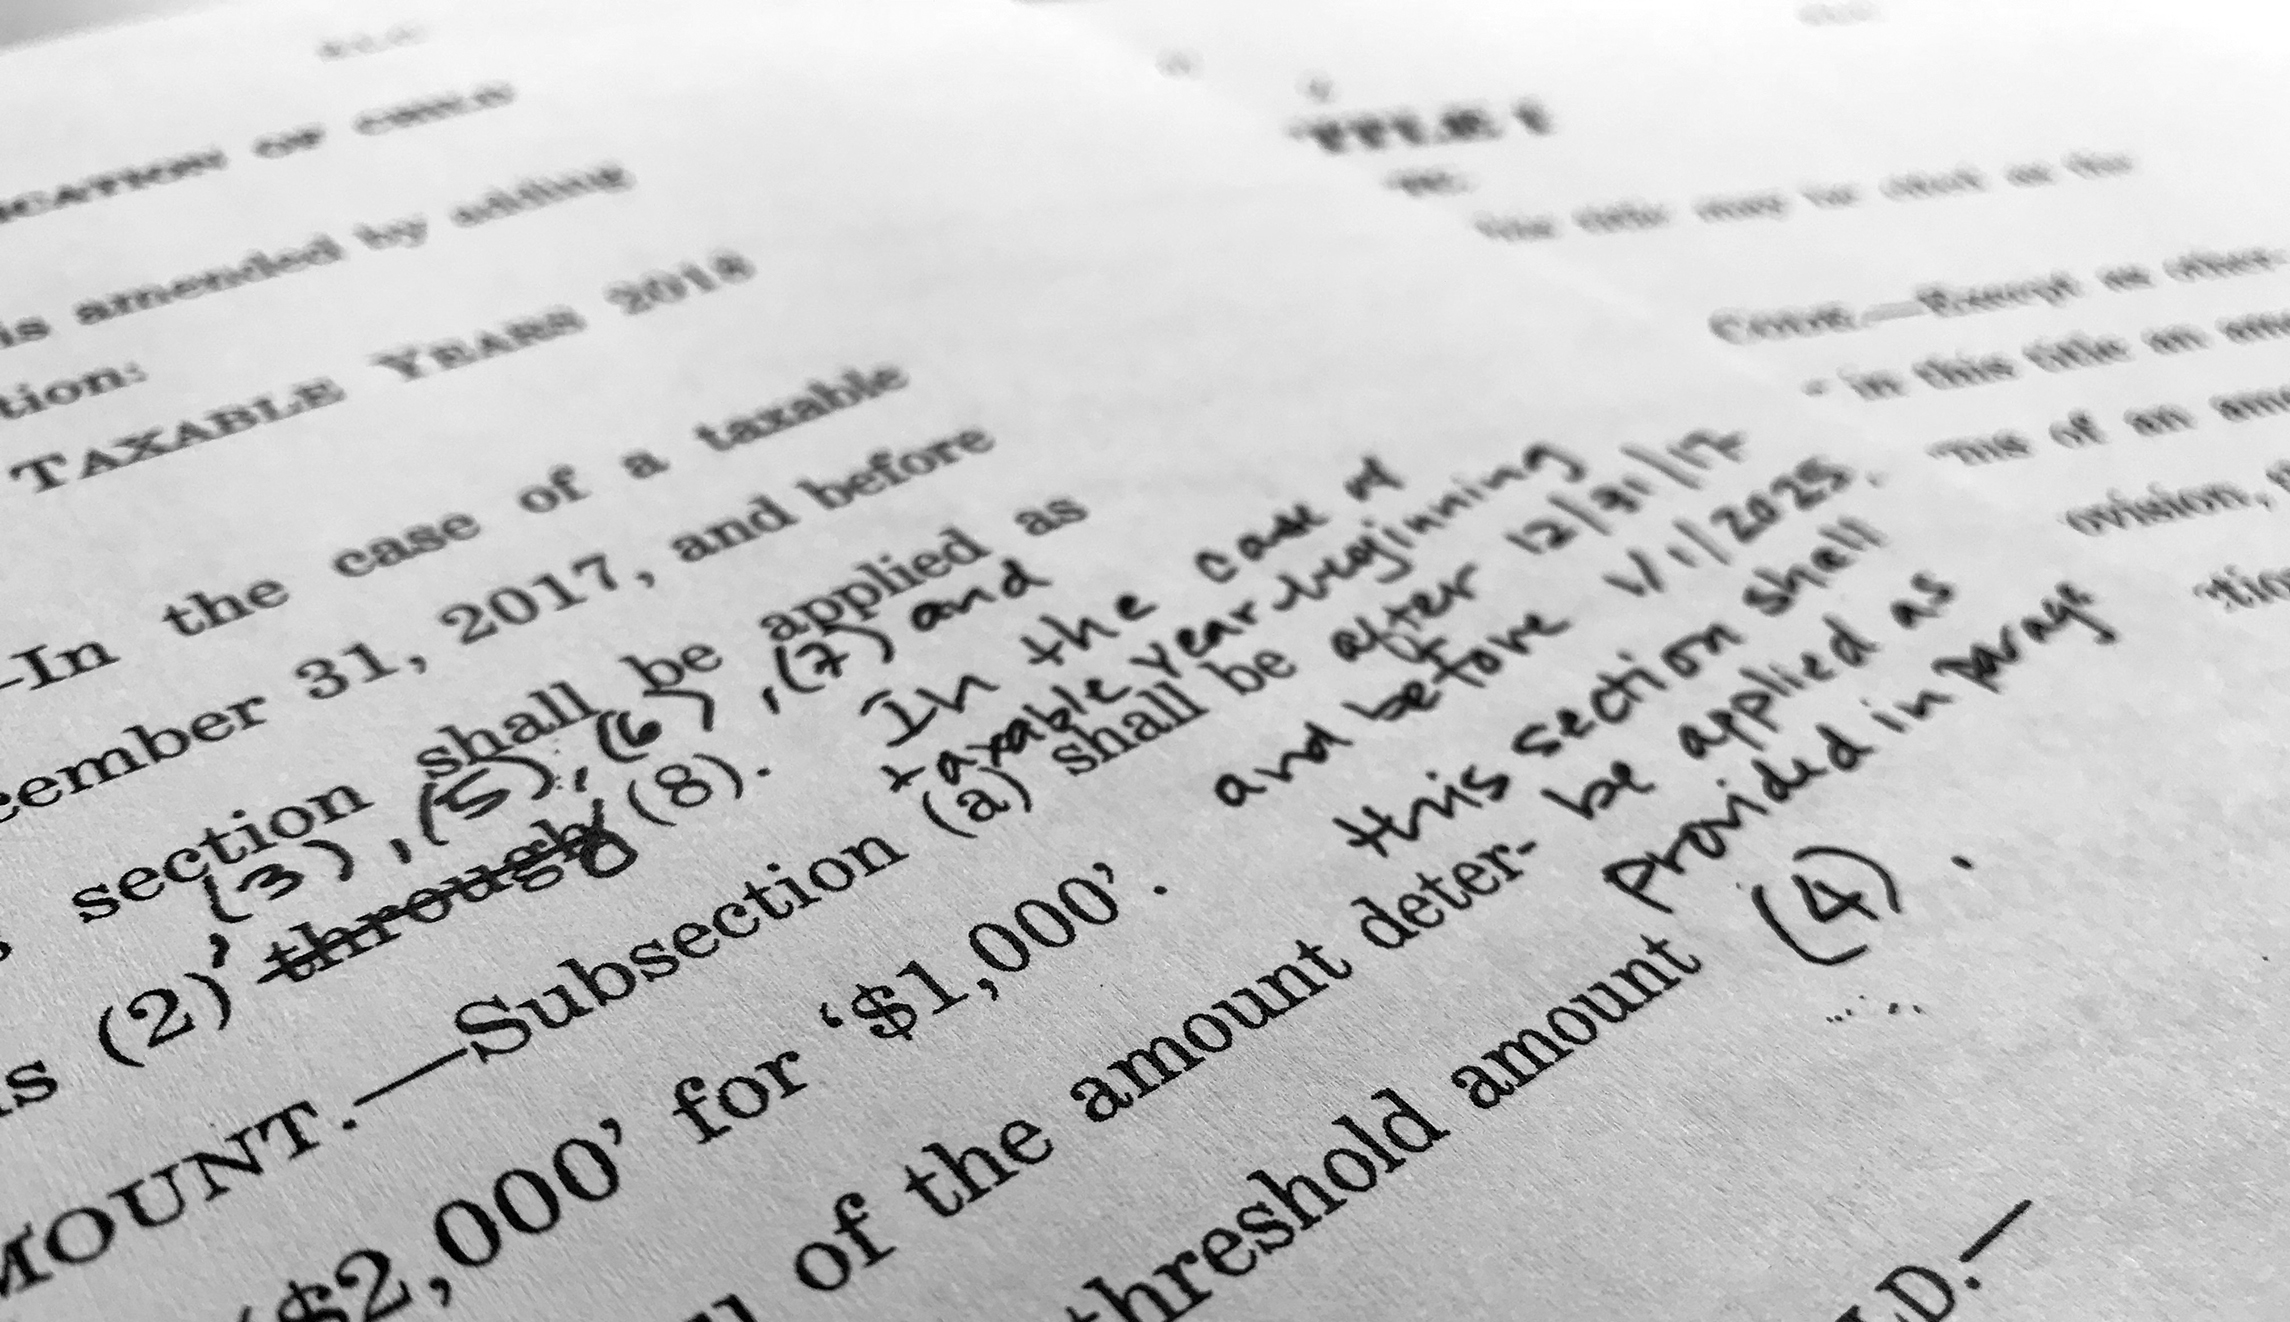 ICATION OF CHILD
is amended by adding
tion:
TAXABLE YEARS 2018
—In the case of a taxable
cember 31, 2017, and before
section shall be applied as
, (3), (5), (6), (7) and
s (2) through (8).
In the case of
taxable year beginning
after 12/31/17
and before 1/1/2025,
this section shall
be applied as
provided in parag
(4).
MOUNT.—Subsection (a) shall be
'$2,000' for '$1,000'.
of the amount deter-
threshold amount
LD.—
TITLE I
title may be cited as the
CODE.—Except as other-
in this title an ame
ms of an ame
ovision,